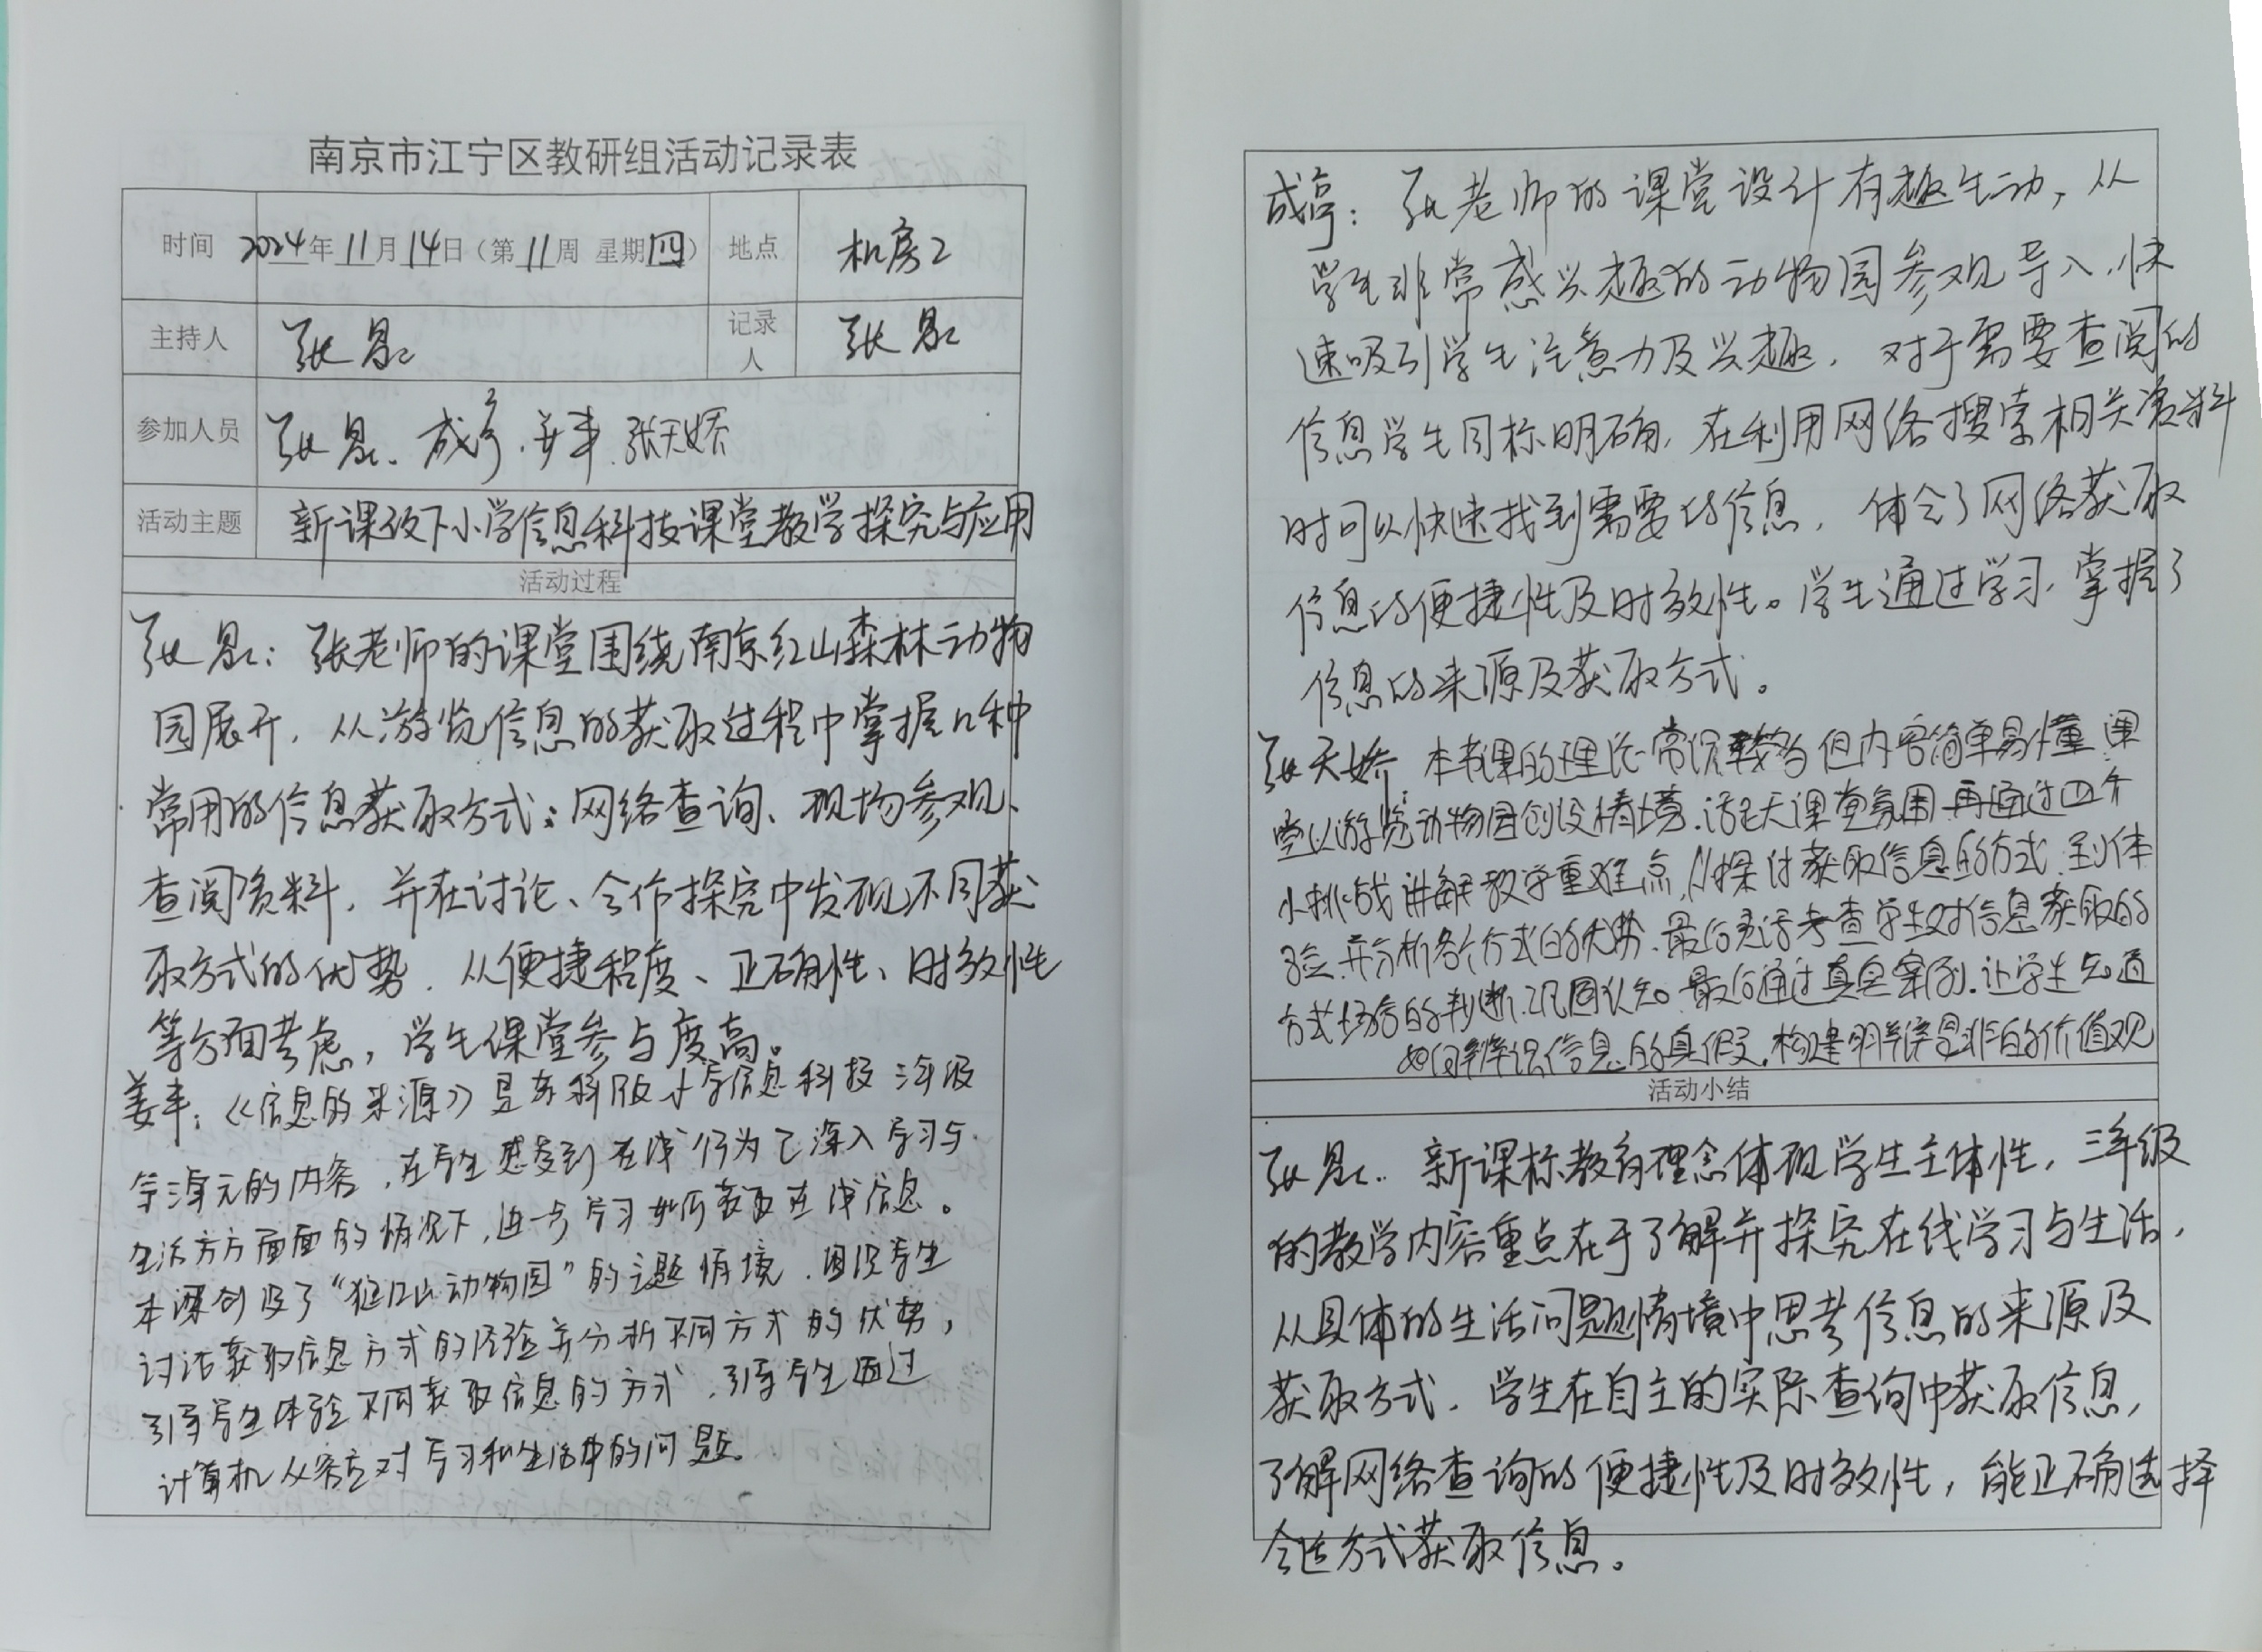 南京市江宁区教研组活动记录表
时间 2024年11月14日(第11周 星期四) 地点 机房2
主持人 张 记录人 张
参加人员 张 、成 、姜丰、张天娇
活动主题 新课改下小学信息科技课堂教学探究与应用
活动过程
张 :张老师的课堂围绕南京红山森林动物
园展开,从游览信息的获取过程中掌握几种
常用的信息获取方式:网络查询、现场参观、
查阅资料,并在讨论、合作探究中发现不同获
取方式的优势,从便捷程度、正确性、时效性
等方面考虑,学生课堂参与度高。
姜丰:《信息的来源》是苏科版小学信息科技三年级
第 单元的内容,在学生感受到在线行为已深入学习与
生活方方面面的情况下,进一步学习如何获取在线信息。
本课创设了“红山动物园”的主题情境,围绕学生
讨论获取信息方式的经验并分析不同方式的优势,
引导学生体验不同获取信息的方式,引导学生通过
计算机从容应对学习和生活中的问题。
成亭:张老师的课堂设计有趣生动,从
学生非常感兴趣的动物园参观导入,快
速吸引学生注意力及兴趣,对于需要查阅的
信息学生目标明确,在利用网络搜索相关资料
时可以快速找到需要的信息,体会了网络获取
信息的便捷性及时效性。学生通过学习,掌握了
信息的来源及获取方式。
张天娇:本节课的理论常识较多但内容简单易懂,课
堂以游览动物园创设情境,活跃课堂氛围,再通过四个
小挑战讲解教学重难点,从探讨获取信息的方式,到体
验并分析各个方式的优势,最后灵活考查学生对信息获取的
方式场合的判断,巩固认知。最后通过真实案例,让学生知道
如何辨识信息的真假,构建明辨是非的价值观
活动小结
张 :新课标教育理念体现学生主体性,三年级
的教学内容重点在于了解并探究在线学习与生活,
从具体的生活问题情境中思考信息的来源及
获取方式,学生在自主的实际查询中获取信息,
了解网络查询的便捷性及时效性,能正确选择
合适方式获取信息。